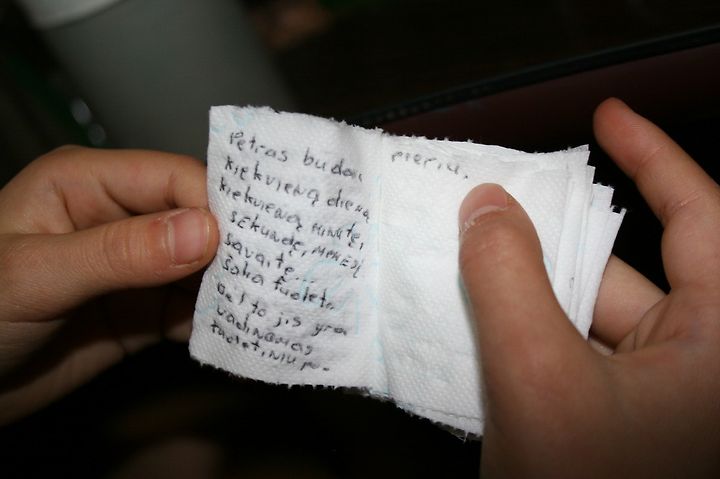 Petras
kiekvieną dieną
kiekvieną minutę,
sekundę, mėnesį
savaitę...
šoka tualete.
Del to jis yra
vadinamas
tualetiniu
pieriu.